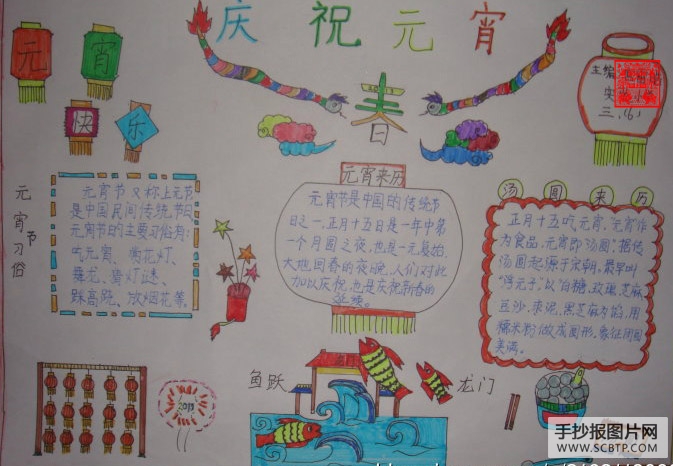 庆祝元宵
元
宵
快
乐
春
主编:
三.(6)
元宵节习俗
元宵节又称上元节
是中国民间传统节日
元宵节的主要习俗有:
吃元宵、赏花灯、
舞龙、猜灯谜、
踩高跷、放烟花等。
元宵来历
元宵节是中国的传统节
日之一,正月十五日是一年中第
一个月圆之夜,也是一元复始,
大地回春的夜晚,人们对此
加以庆祝,也是庆祝新春的
延续。
汤圆来历
正月十五吃元宵,元宵作
为食品,元宵即"汤圆"据传
汤圆起源于宋朝,最早叫
"浮元子"以白糖、玫瑰、芝麻
豆沙、枣泥、黑芝麻为馅,用
糯米粉做成圆形,象征团圆
美满。
2013
鱼跃
龙门
手抄报图片网
WWW.SCBTP.COM